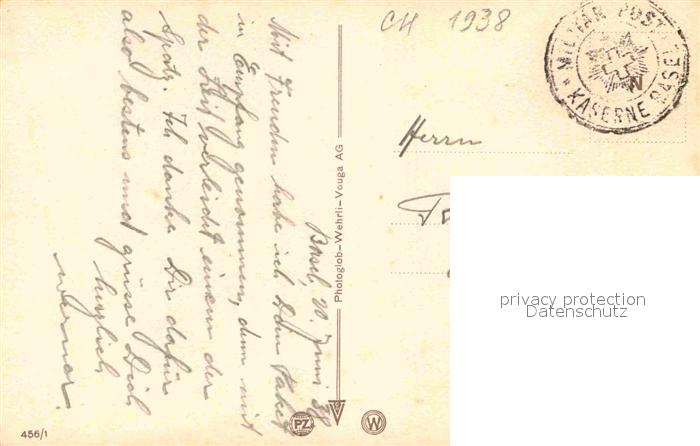 CH 1938
MILITÄR POST
KASERNE BASEL
Basel, 20. Juni 38
Mit Freuden habe ich Dein Paket
in Empfang genommen, denn mit
der Zeit verleidet einem der
Spatz. Ich danke Dir dafür
also bestens und grüsse Dich
herzlich
Werner.
Photoglob-Wehrli-Vouga AG
Herrn
privacy protection
Datenschutz
PZ
V
W
456/1